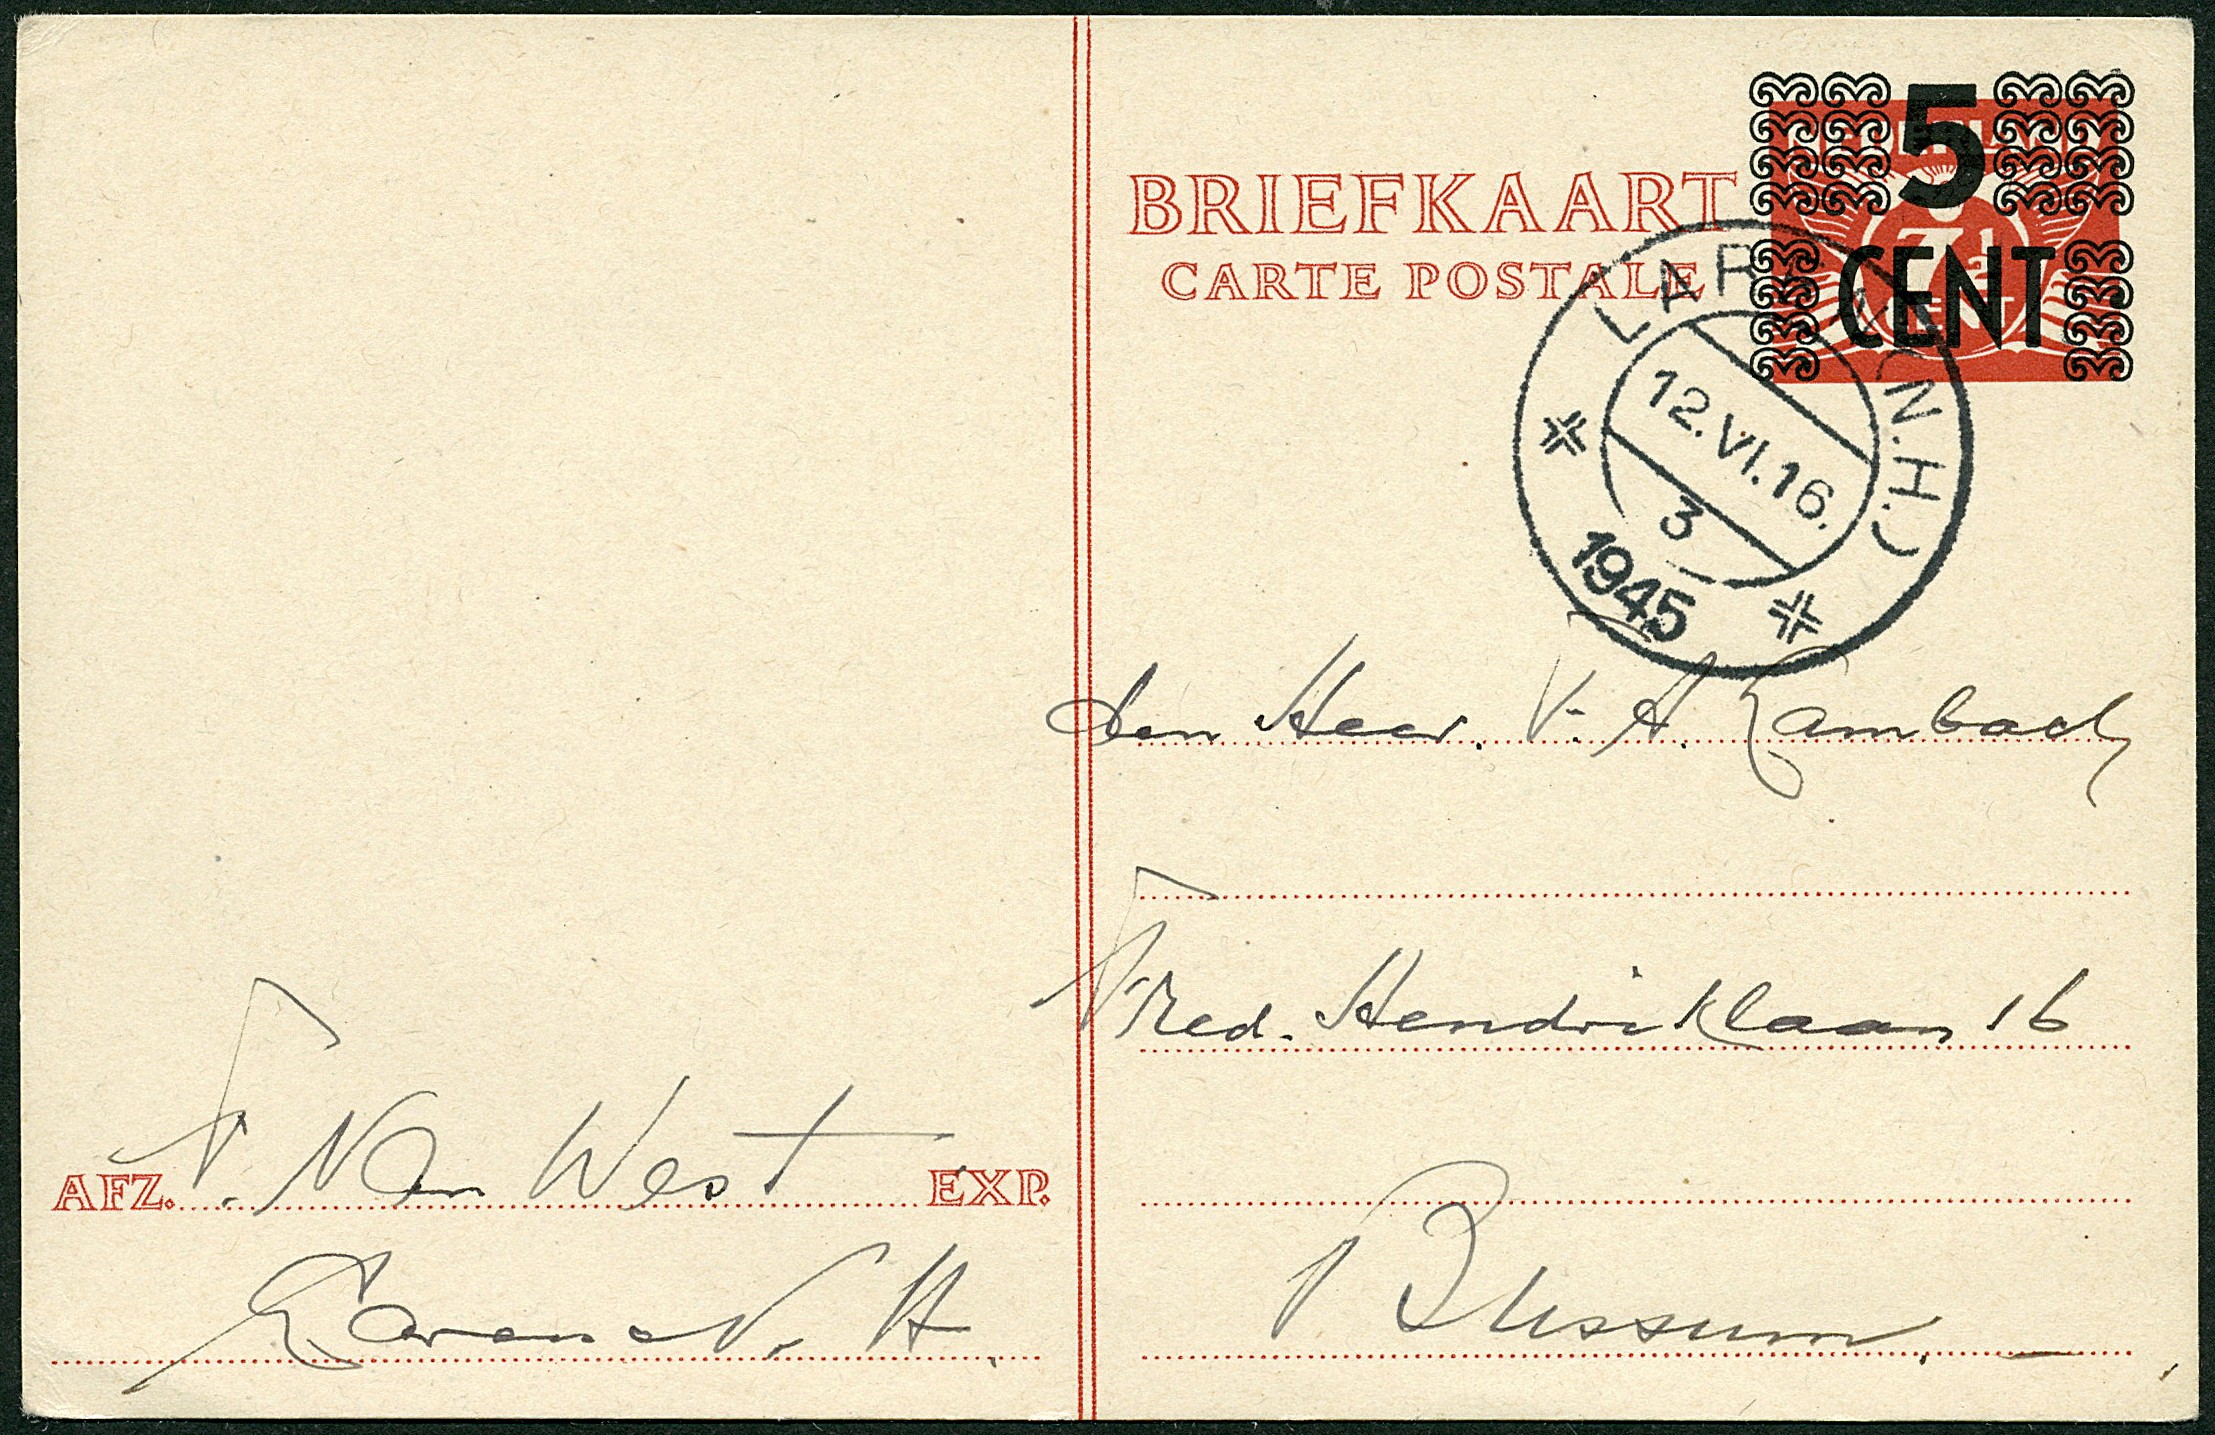 BRIEFKAART
CARTE POSTALE
5
CENT
LAREN (N.H.)
12.VI.16.
3
1945
den Heer. V. A. Lambach
Fred. Hendriklaan 16
Bussum.
AFZ. F. Van West EXP.
Laren N. H.